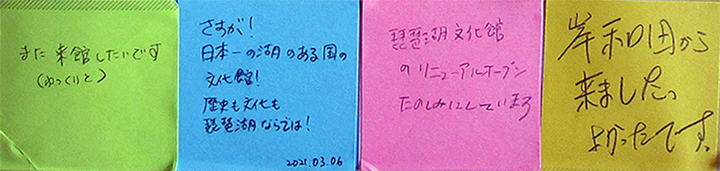 また来館したいです
(ゆっくりと)
さすが!
日本一の湖のある国の
文化館!
歴史も文化も
琵琶湖ならでは!
2021.03.06
琵琶湖文化館
のリニューアルオープン
たのしみにしています
岸和田から
来ました。
よかったです。